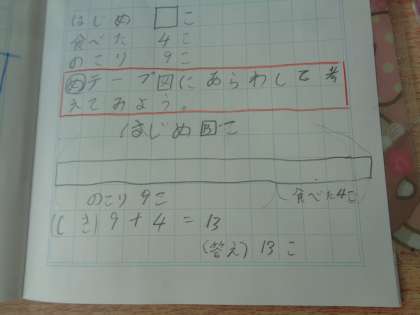 はじめ □こ
食べた 4こ
のこり 9こ
めテープ図にあらわして考
えてみよう。
はじめ□こ
のこり 9こ 食べた4こ
(しき) 9+4=13
(答え) 13こ